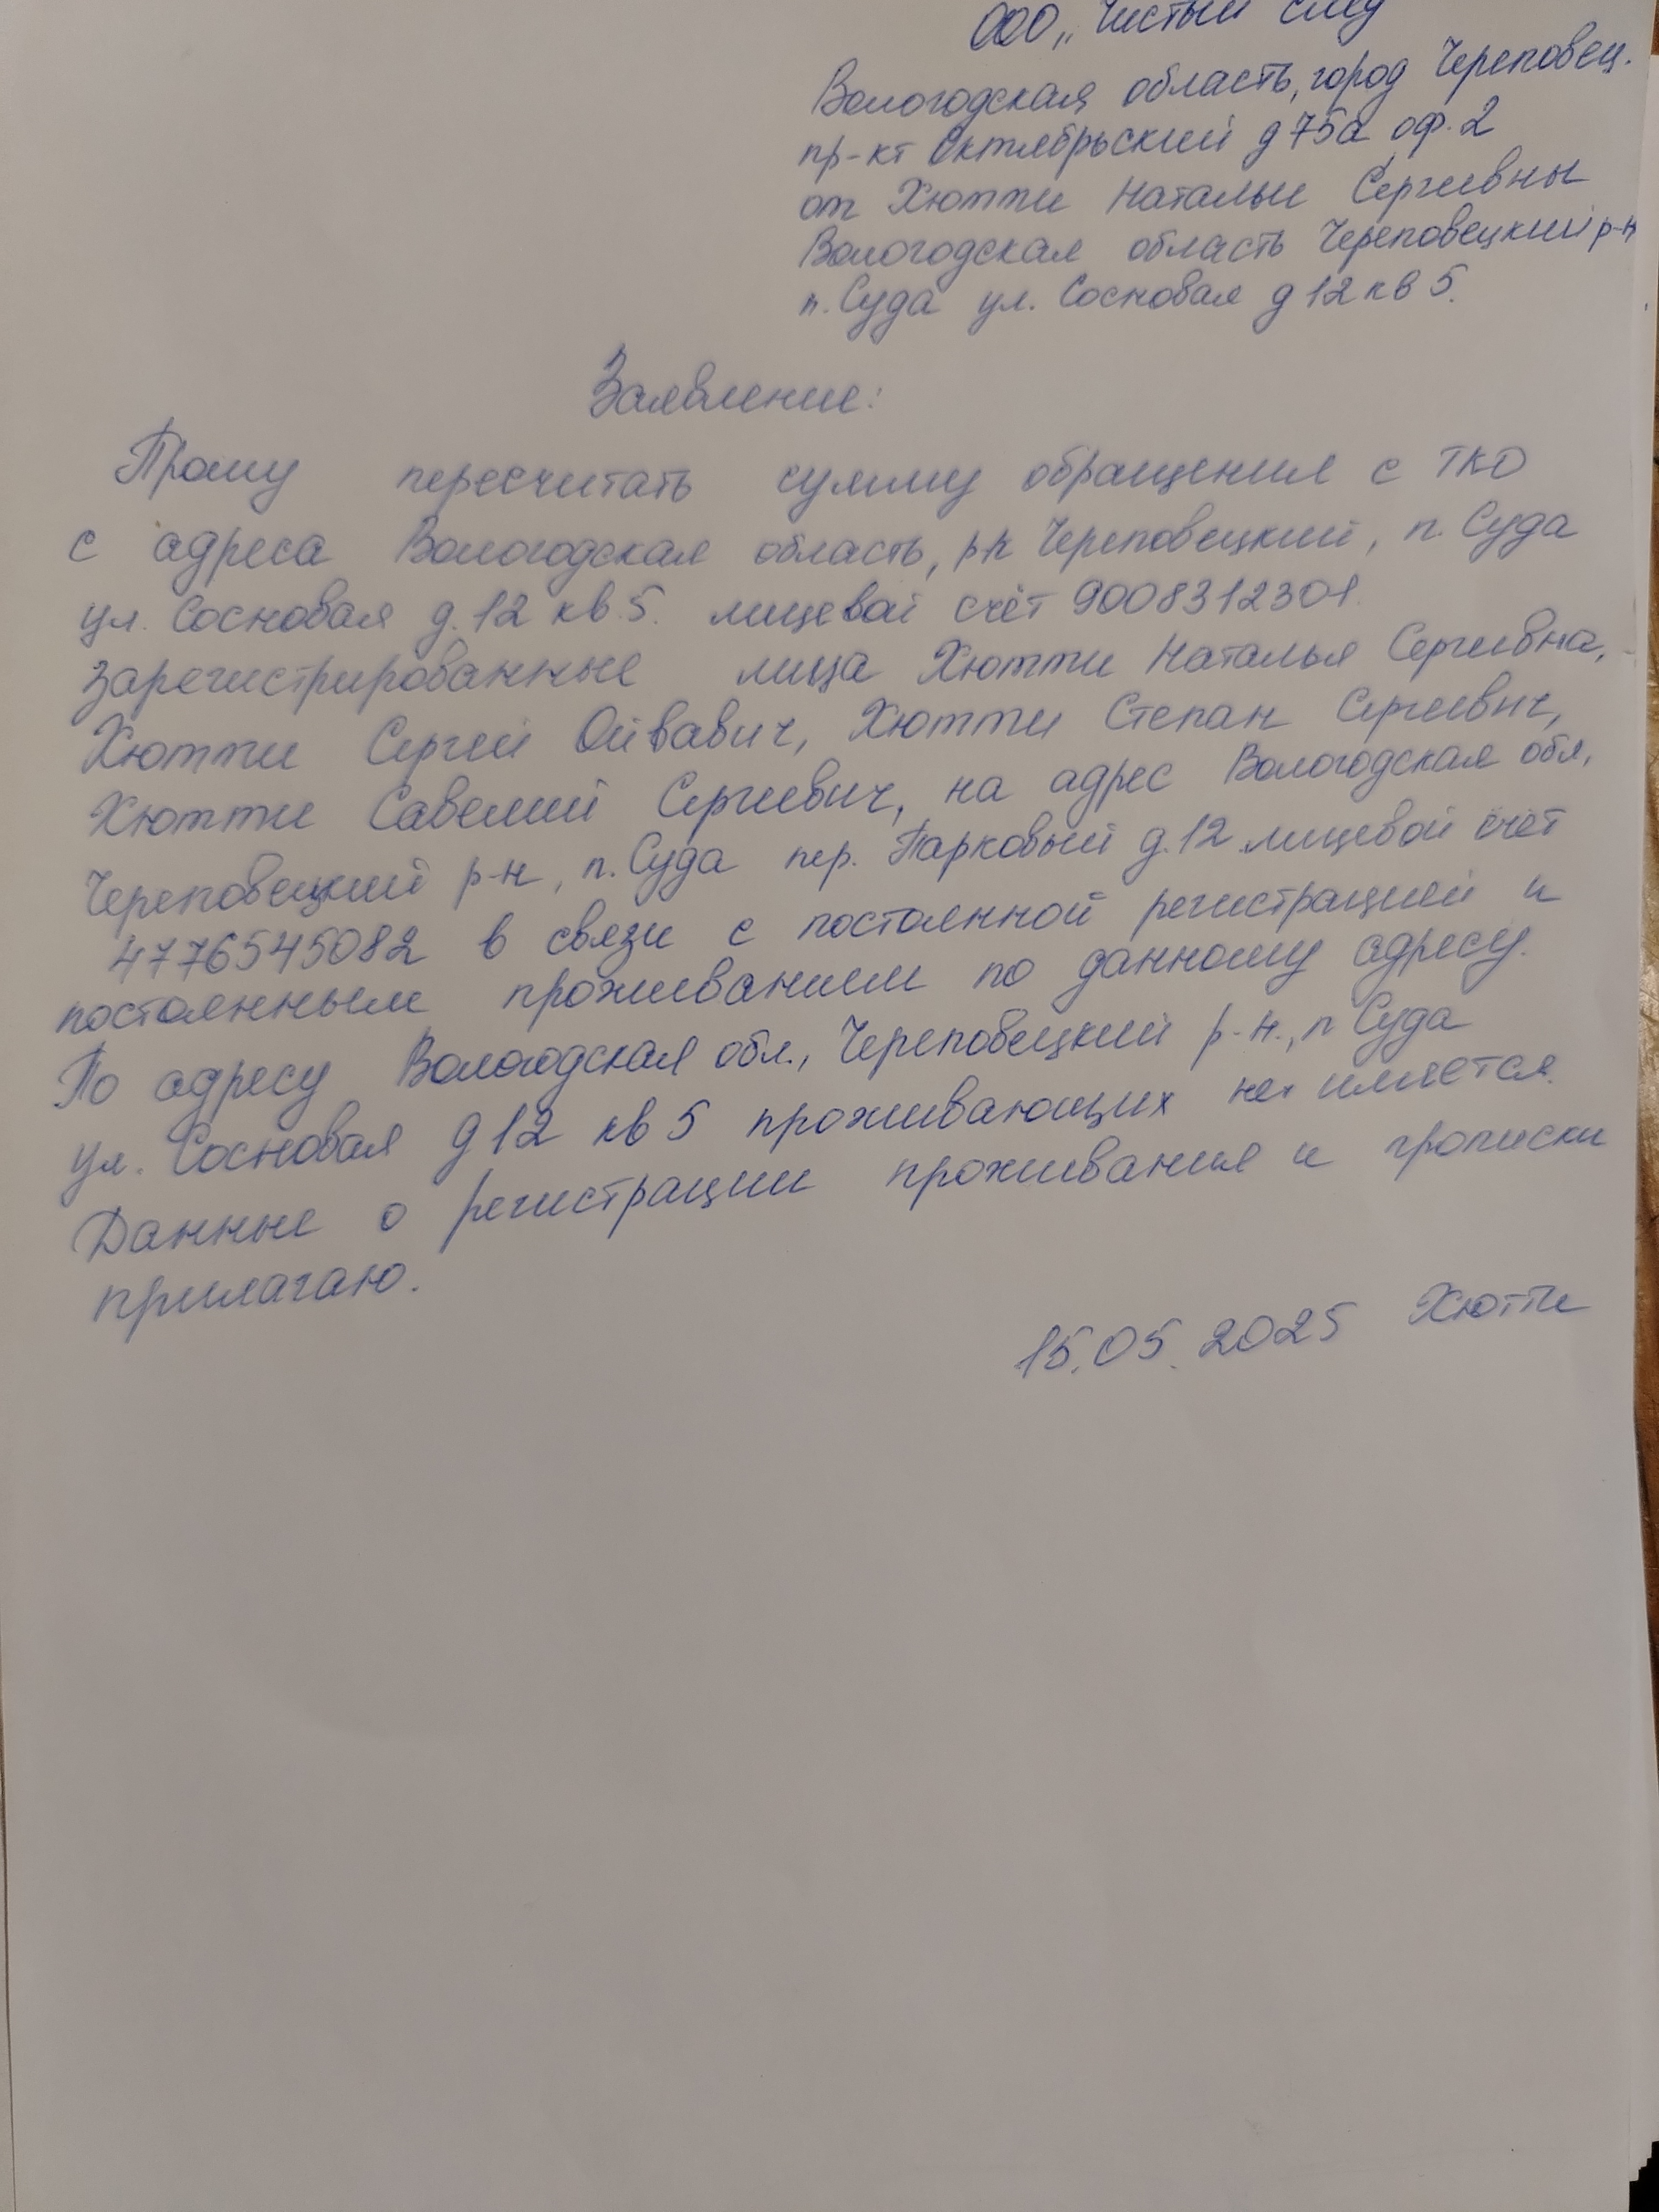 ООО „Чистый след
Вологодская область, город Череповец.
пр-кт Октябрьский д 75а оф. 2
от Хютти Натальи Сергеевны
Вологодская область Череповецкий р-н
п. Суда ул. Сосновая д 12 кв 5.
Заявление:
Прошу пересчитать сумму обращения с ТКО
с адреса Вологодская область, р-н Череповецкий, п. Суда
ул. Сосновая д. 12 кв. 5. лицевой счёт 9008312301.
зарегистрированные лица Хютти Наталья Сергеевна,
Хютти Сергей Ойвавич, Хютти Степан Сергеевич,
Хютти Савелий Сергеевич, на адрес Вологодская обл,
Череповецкий р-н, п. Суда пер. Парковый д. 12 лицевой счёт
4776545082 в связи с постоянной регистрацией и
постоянным проживанием по данному адресу.
По адресу Вологодская обл., Череповецкий р-н., п Суда
ул. Сосновая д 12 кв 5 проживающих не имеется.
Данные о регистрации проживания и прописки
прилагаю.
15.05.2025 Хютти